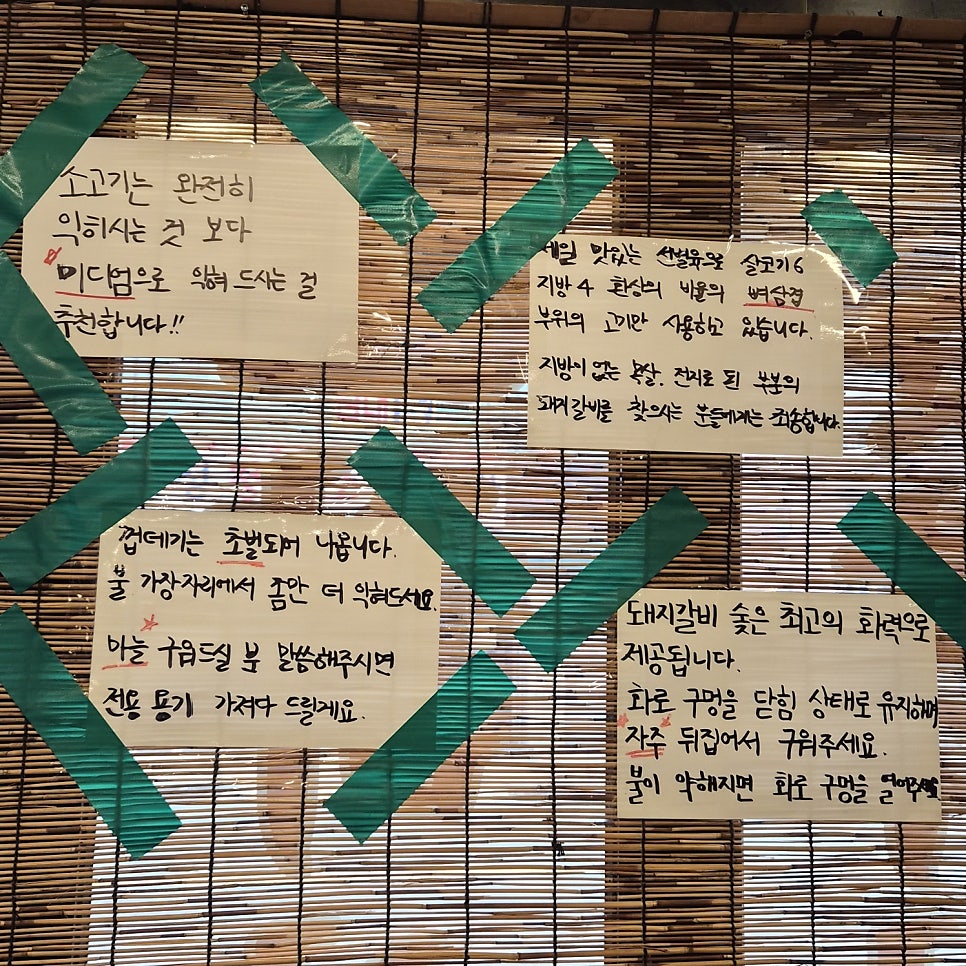 소고기는 완전히
익히시는 것 보다
미디엄으로 익혀 드시는 걸
추천합니다!!
제일 맛있는 선별육으로 살코기6
지방4 환상의 비율의 뼈삼겹
부위의 고기만 사용하고 있습니다.
지방이 없는 목살. 전지로 된 부분의
돼지갈비를 찾으시는 분들에게는 죄송합니다.
껍데기는 초벌되어 나옵니다.
불 가장자리에서 좀만 더 익혀드세요.
마늘 구워드실 분 말씀해주시면
전용 용기 가져다 드릴게요.
돼지갈비 숯은 최고의 화력으로
제공됩니다.
화로 구멍을 닫힘 상태로 유지하며
자주 뒤집어서 구워주세요.
불이 약해지면 화로 구멍을 열어주세요